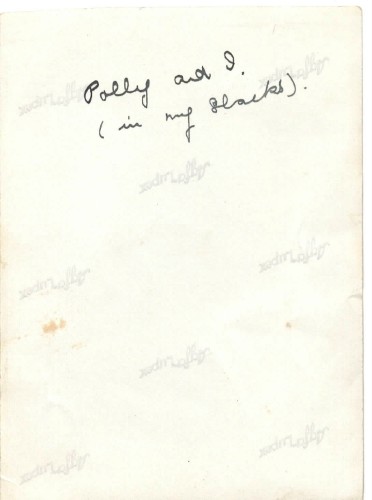 Polly and I.
(in my slacks).